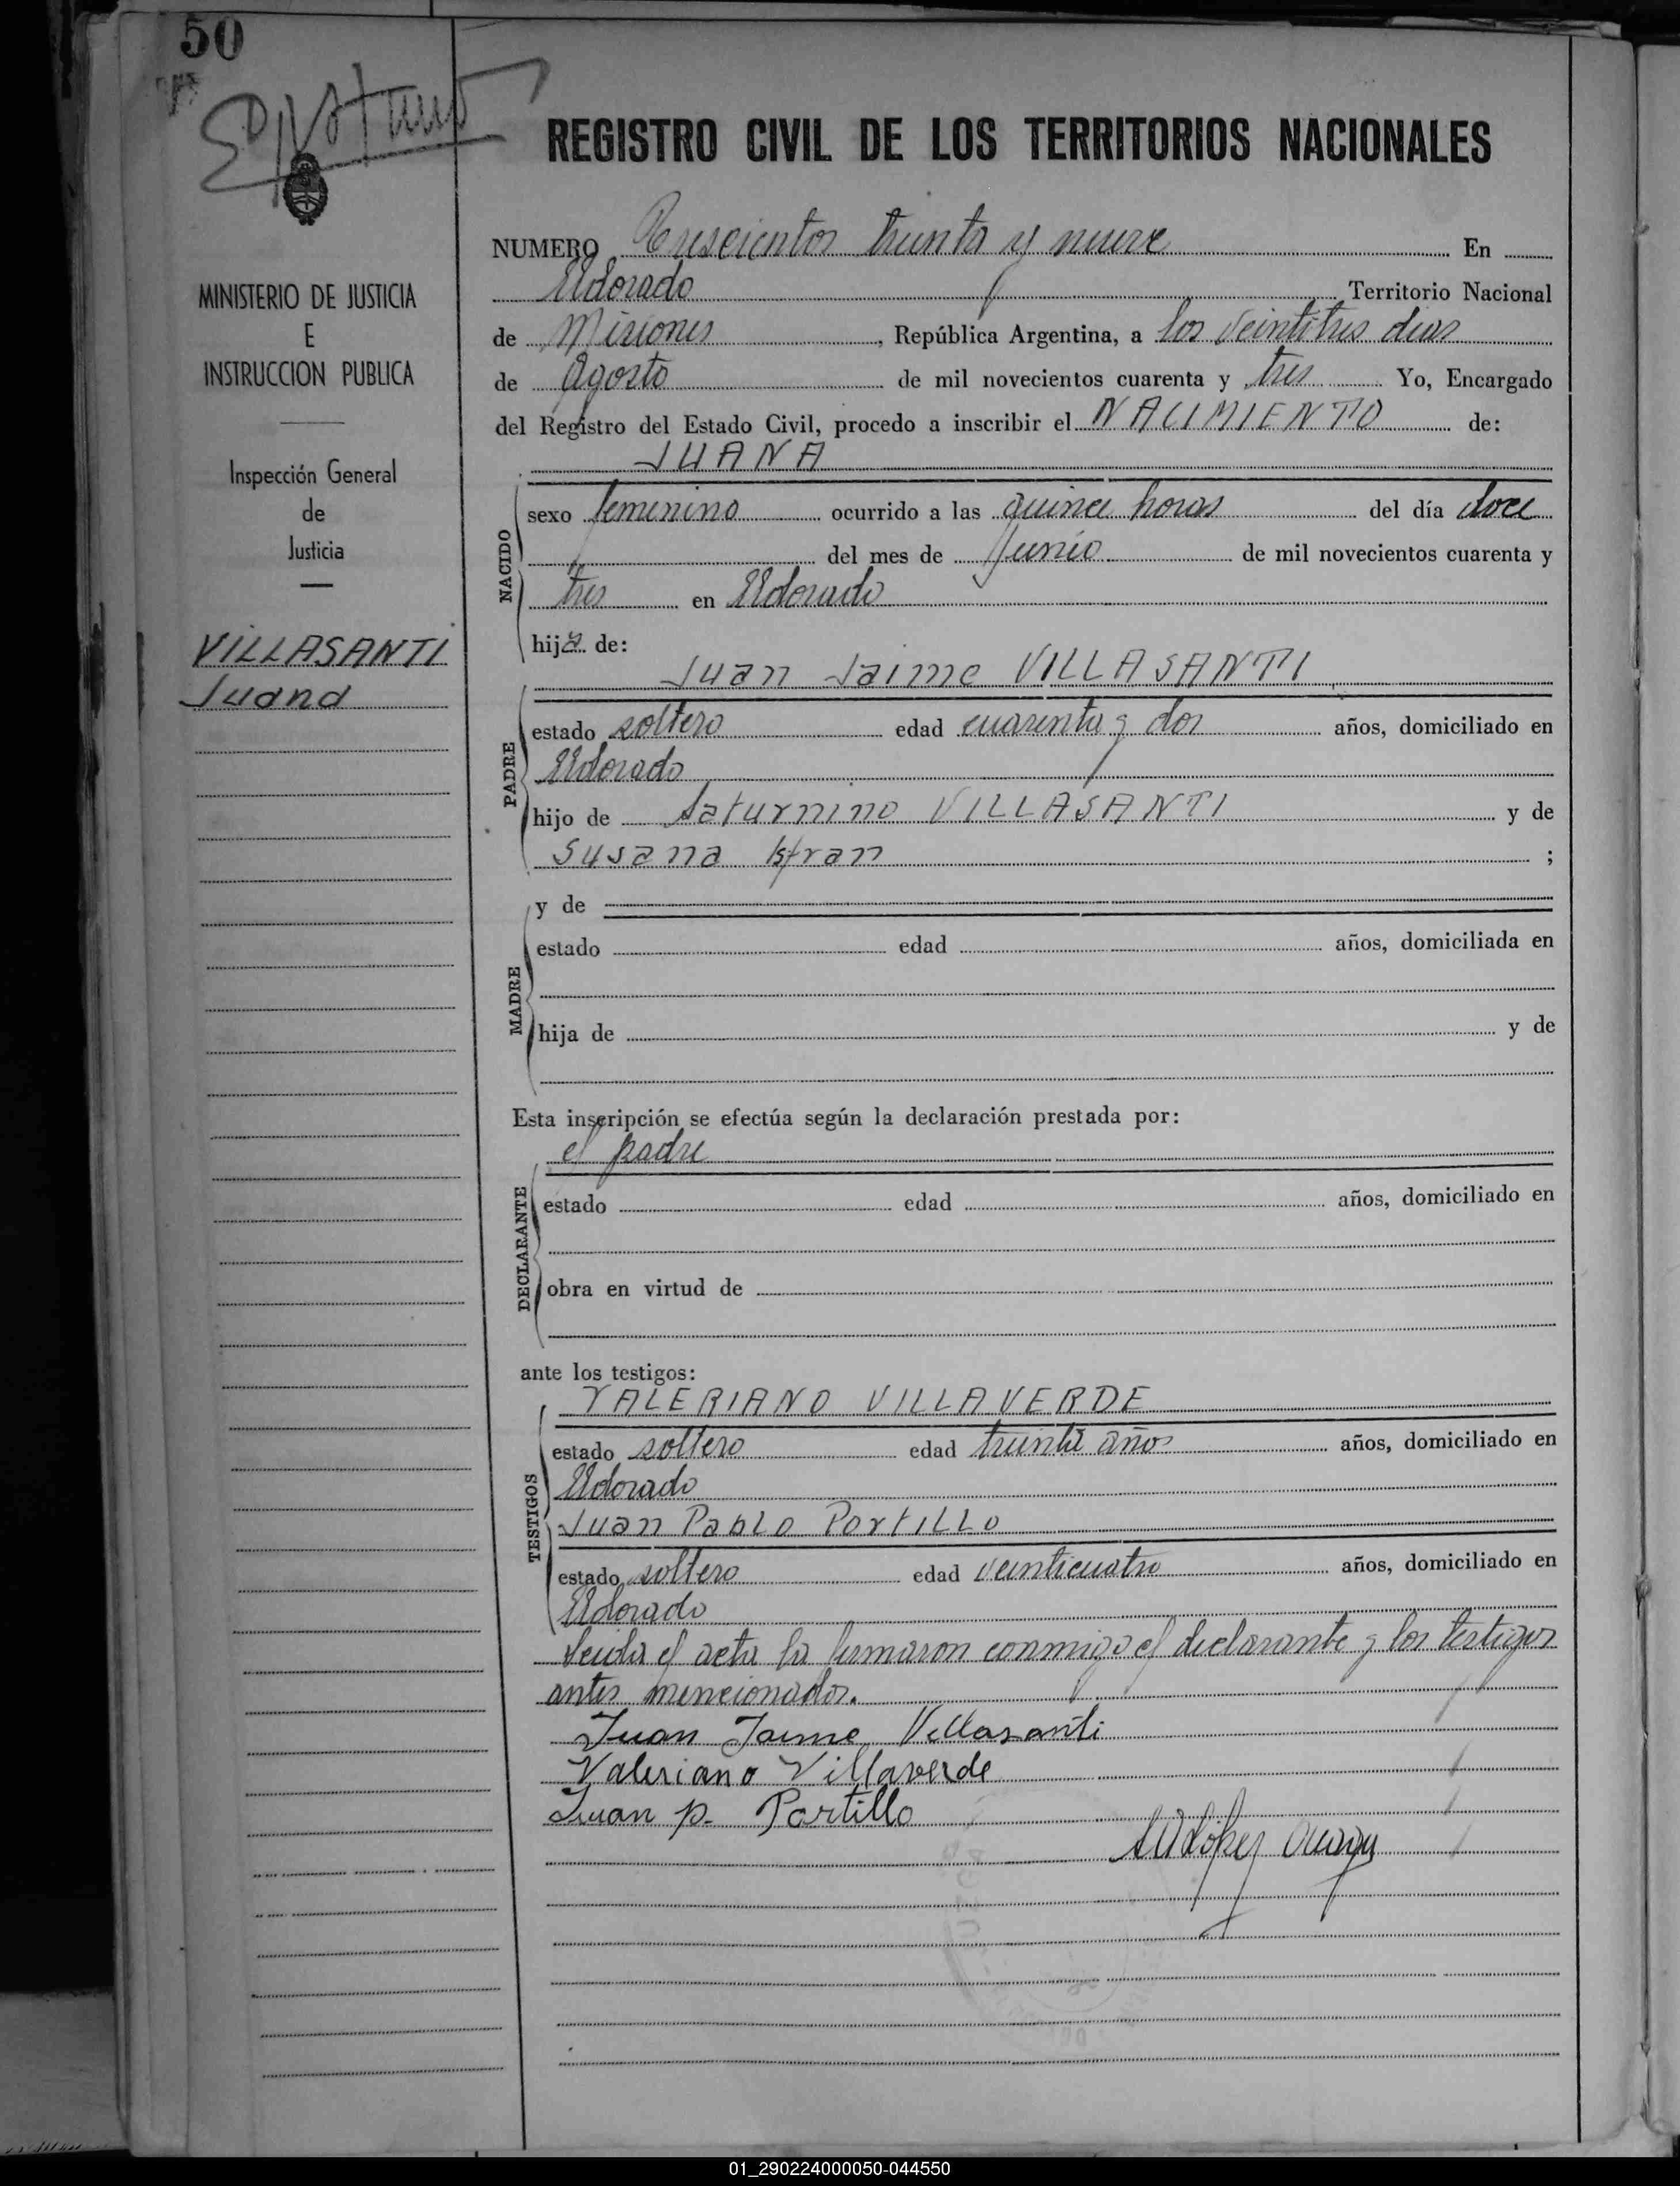 50
REGISTRO CIVIL DE LOS TERRITORIOS NACIONALES
MINISTERIO DE JUSTICIA
E
INSTRUCCION PUBLICA
Inspección General
de
Justicia
VILLASANTI
Juana
NUMERO Trescientos treinta y nueve En
Eldorado Territorio Nacional
de Misiones, República Argentina, a los veintitres dias
de Agosto de mil novecientos cuarenta y tres Yo, Encargado
del Registro del Estado Civil, procedo a inscribir el NACIMIENTO de:
JUANA
NACIDO
sexo femenino ocurrido a las quince horas del día doce
del mes de Junio de mil novecientos cuarenta y
tres en Eldorado
hija de:
Juan Jaime VILLASANTI
PADRE
estado soltero edad cuarenta y dos años, domiciliado en
Eldorado
hijo de Saturnino VILLASANTI y de
Susana ;
MADRE
y de
estado edad años, domiciliada en
hija de y de
Esta inscripción se efectúa según la declaración prestada por:
el padre
DECLARANTE
estado edad años, domiciliado en
obra en virtud de
ante los testigos:
VALERIANO VILLAVERDE
TESTIGOS
estado soltero edad treinta años años, domiciliado en
Eldorado
Juan Pablo Portillo
estado soltero edad veinticuatro años, domiciliado en
Eldorado
Leida el acta la firmaron conmigo el declarante y los testigos
antes mencionados.
Juan Jaime Villasanti
Valeriano Villaverde
Juan p. Portillo
01_290224000050-044550